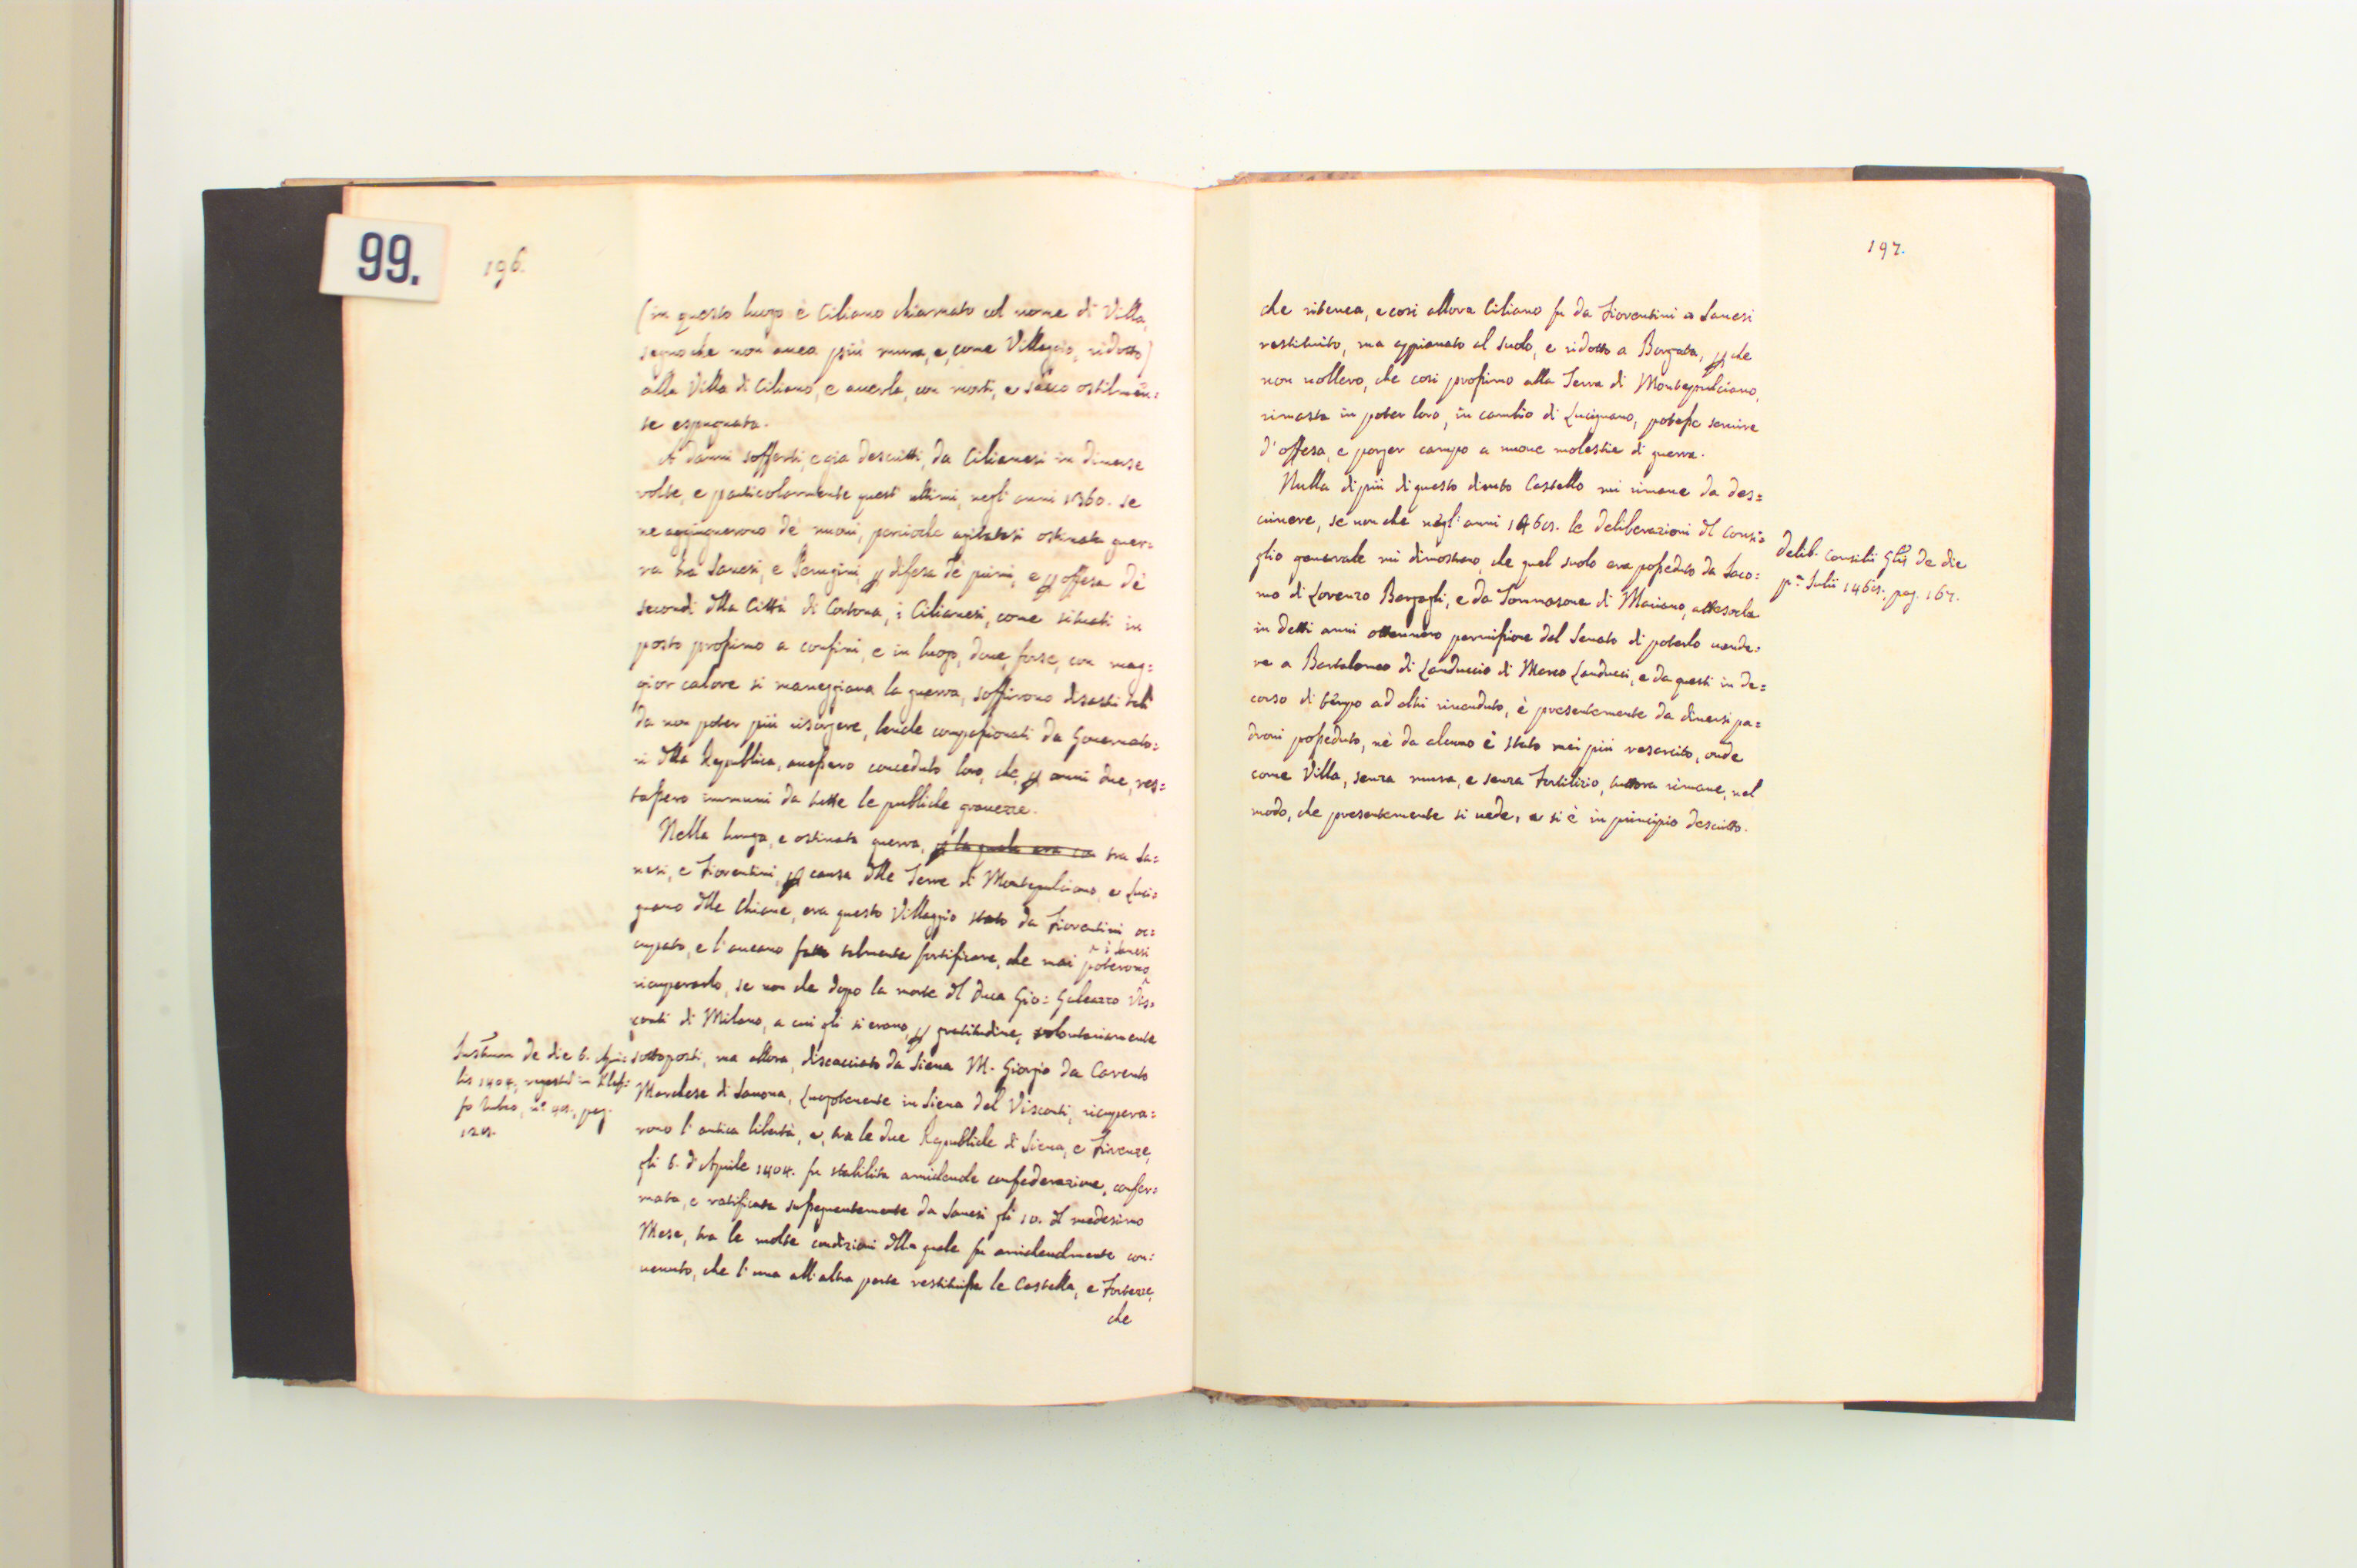 99.
196.
(in questo luogo è Ciliano chiamato col nome di Villa,
segno che non auea più mura, e, come Villaggio, ridotto)
alla Villa di Ciliano, e auerla, con morti, e sacco ostilmen=
te espugnata.
A danni sofferti, e gia descritti, da Cilianesi in diuerse
volte, e particolarmente questi ultimi, negl' anni 1360. se
ne aggiunsero de' nuoui, perciocche agitatasi ostinata guer=
ra tra Sanesi, e Perugini, p difesa de' primi, e p offesa de'
secondi dlla Città di Cortona, i Cilianesi, come situati in
posto prossimo a confini, e in luogo, doue, forse, con mag=
gior calore si maneggiaua la guerra, soffrirono disastri tali
da non poter più risorgere, benche compassionati da Gouernato=
ri dlla Republica, auessero conceduto loro, che, p anni due, res=
tassero immuni da tutte le publiche grauezze.
Nella lunga, e ostinata guerra, p la quale era con tra Sa=
nesi, e Fiorentini, p causa dlle Terre di Montepulciano, e Luci=
gnano dlle Chiane, era questo Villaggio stato da Fiorentini oc=
cupato, e l'aueano fatto talmente fortificare, che mai poterono
i Sanesi
ricuperarlo, se non che dopo la morte dl Duca Gio= Galeazzo Vis=
conti di Milano, a cui gli si erano, p gratitudine, volontariamente
sottoposti, ma allora, discacciato da Siena M. Giorgio da Caretto
Marchese di Sauona, Luogotenente in Siena del Visconti, ricupera=
rono l'antica libertà, e, tra le due Republiche di Siena, e Firenze,
gli 6. d'Aprile 1404. fu stabilita amicheuole confederazione, confer=
mata, e ratificata susseguentemente da Sanesi gli 10. dl medesimo
Mese, tra le molte condizioni dlla quale fu amicheuolmente con=
uenuto, che l'una all'altra parte restituisse le Castella, e Fortezze,
che
Instrum de die 6. Apri=
lis 1404, in Klef=
fo rubeo, n° pag.
197.
che ritenea, e così allora Ciliano fu da Fiorentini a Sanesi
restituito, ma appianato al suolo, e ridotto a Borgata, p che
non uollero, che così prossimo alla Terra di Montepulciano,
rimasta in poter loro, in cambio di Lucignano, potesse seruire
d'offesa, e porger campo a nuoue molestie di guerra.
Nulla di più di questo diruto Castello mi rimane da des=
criuere, se non che negl' anni le deliberazioni dl Consi=
glio generale mi dimostrano, che quel suolo era posseduto da Iaco=
mo di Lorenzo Bargagli, e da Tommasone di Mariano, attesoche
in detti anni ottennero permissione dal Senato di poterlo uende=
re a Bartolomeo di Landuccio di Marco Landucci, e da questi in de=
corso di tempo ad altri riuenduto, è presentemente da diuersi pa=
droni posseduto, nè da alcuno è stato mai più resarcito, onde
come Villa, senza mura, e senza Fortilizio, tuttora rimane, nel
modo, che presentemente si uede, e si è in principio descritto.
Delib. Consilii Glis de die
p.ª Iulii pag. 167.